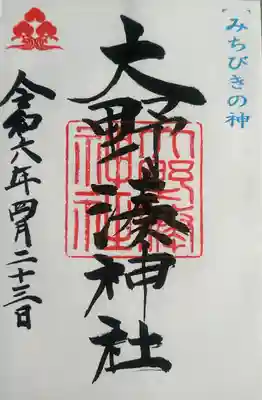 みちびきの神
大野湊神社
令和六年四月二十三日